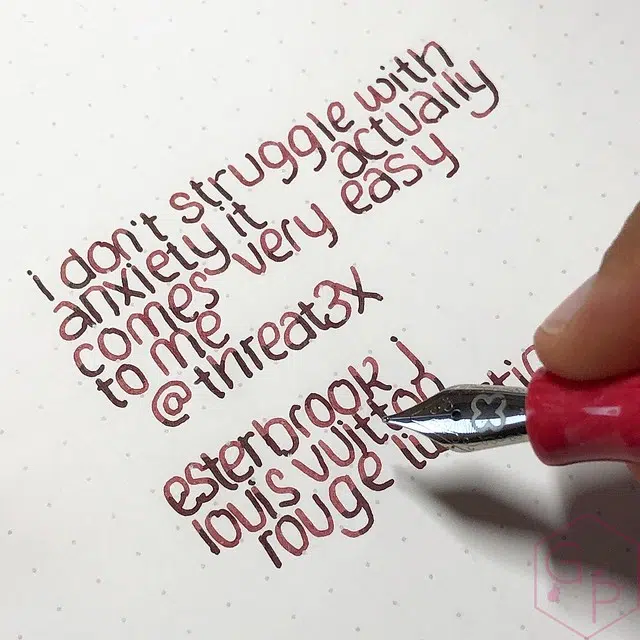 i don't struggle with
anxiety it actually
comes very easy
to me
@threat3x
esterbrook j
louis vuitton
rouge
GP